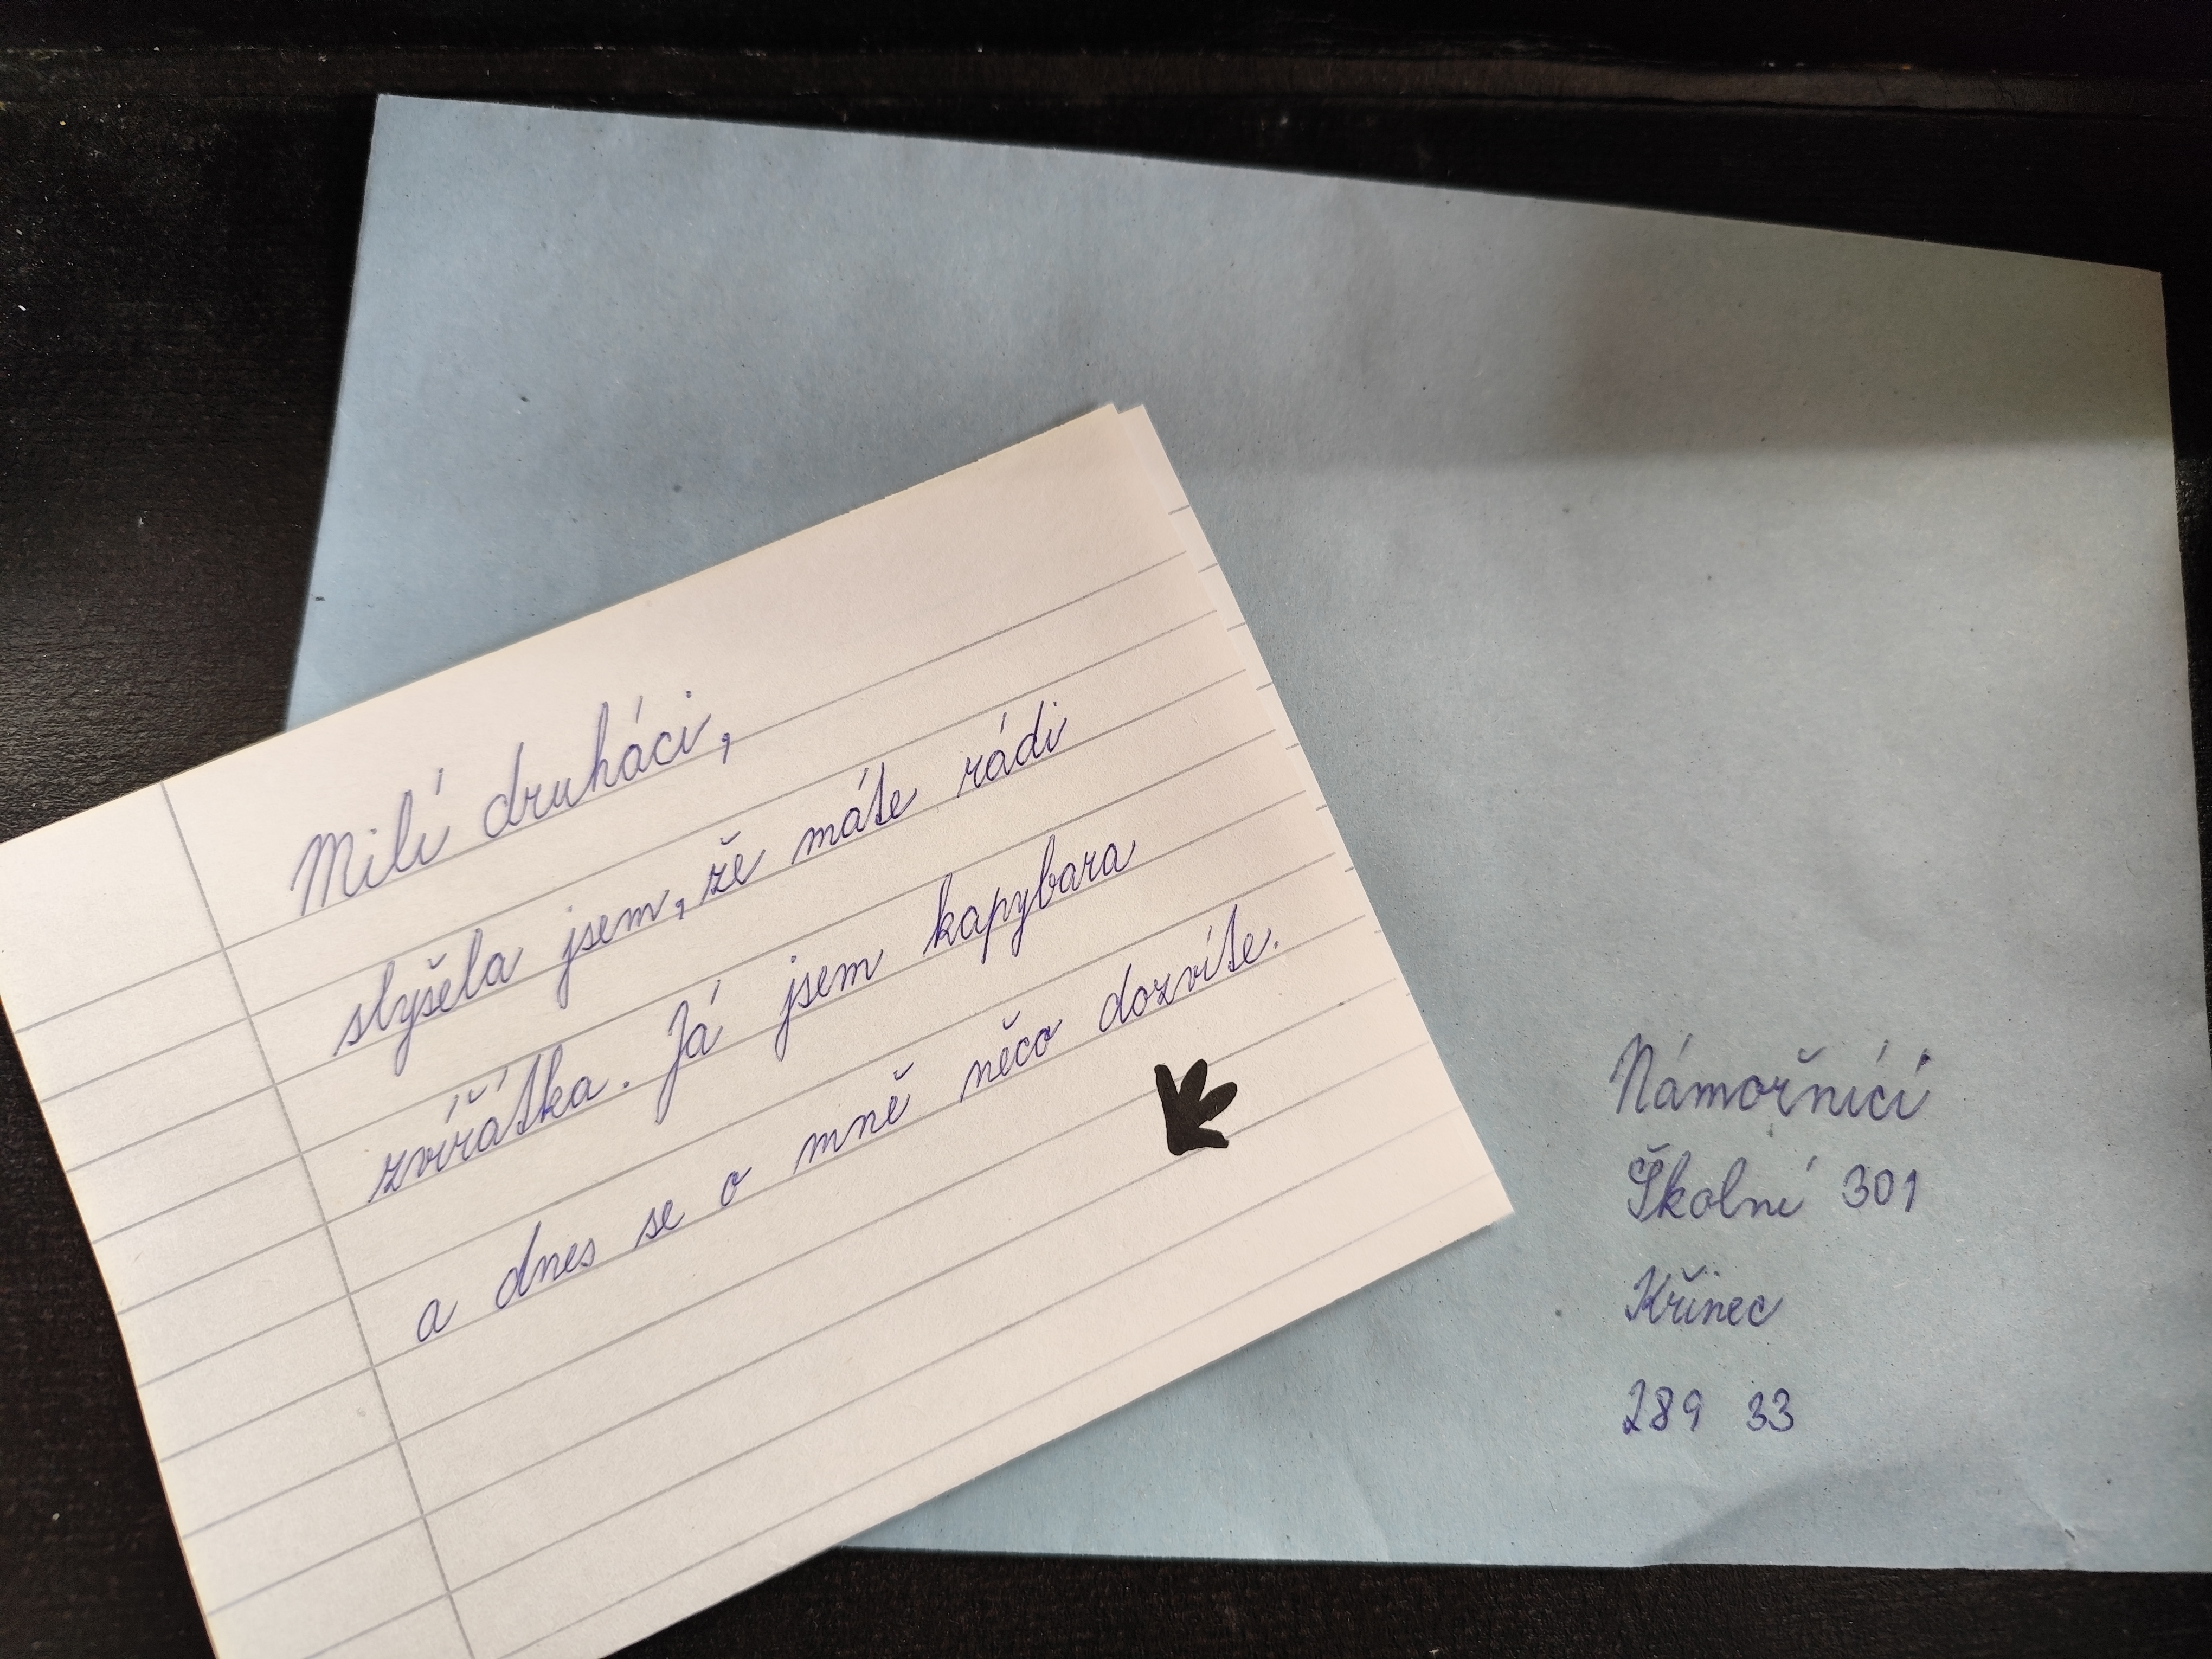 Milí druháci,
slyšela jsem, že máte rádi
zvířátka. Já jsem kapybara
a dnes se o mně něco dozvíte.
Námořníci
Školní 301
Křinec
289 33